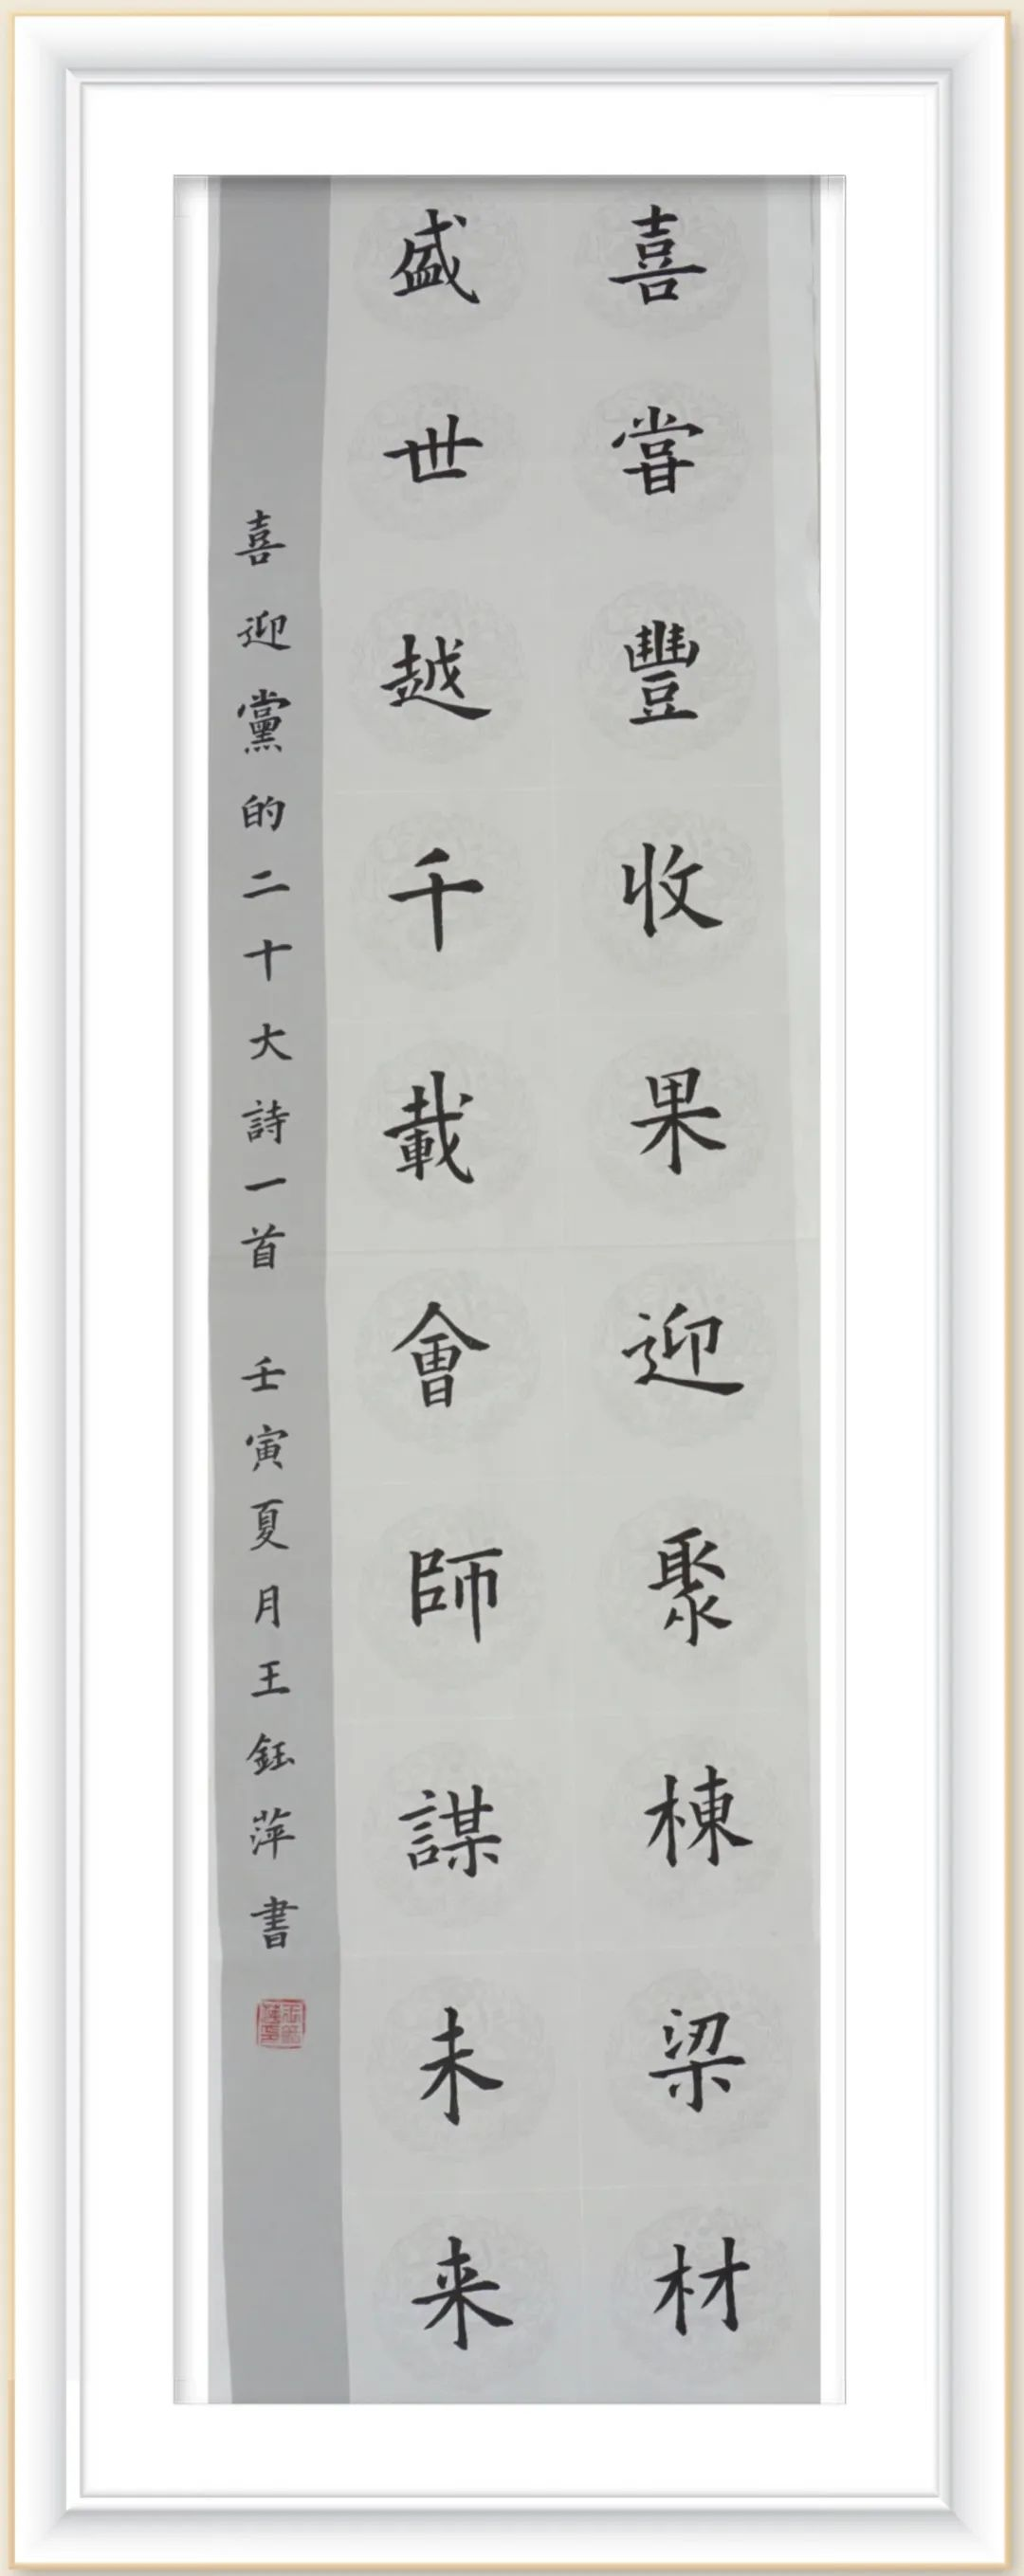 喜嘗豐收果迎聚棟梁材
盛世越千載會師謀未来
喜迎黨的二十大詩一首 壬寅夏月王鈺萍書